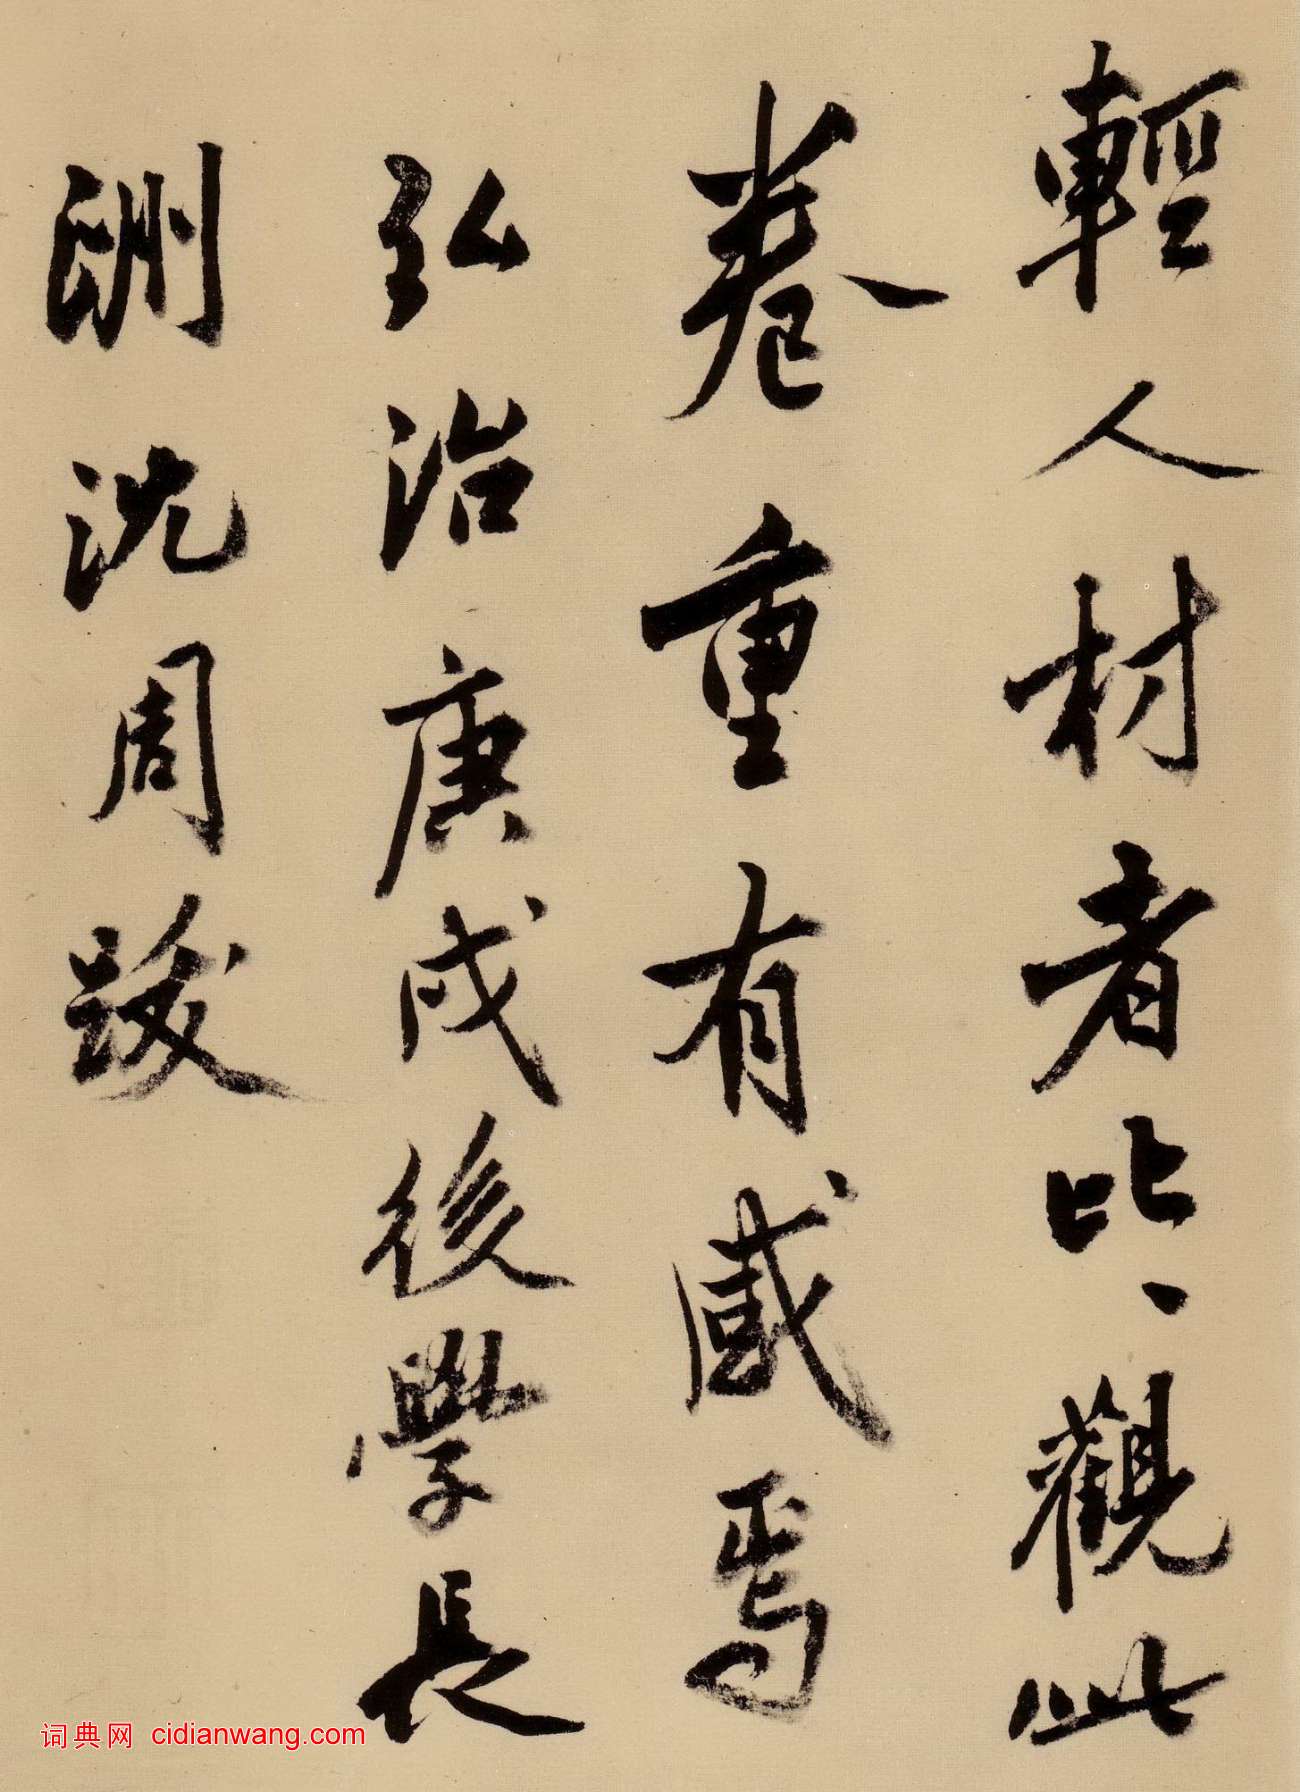 輕人材者比比觀此
卷重有感焉
弘治庚戌後學長
洲沈周跋
词典网 cidianwang.com